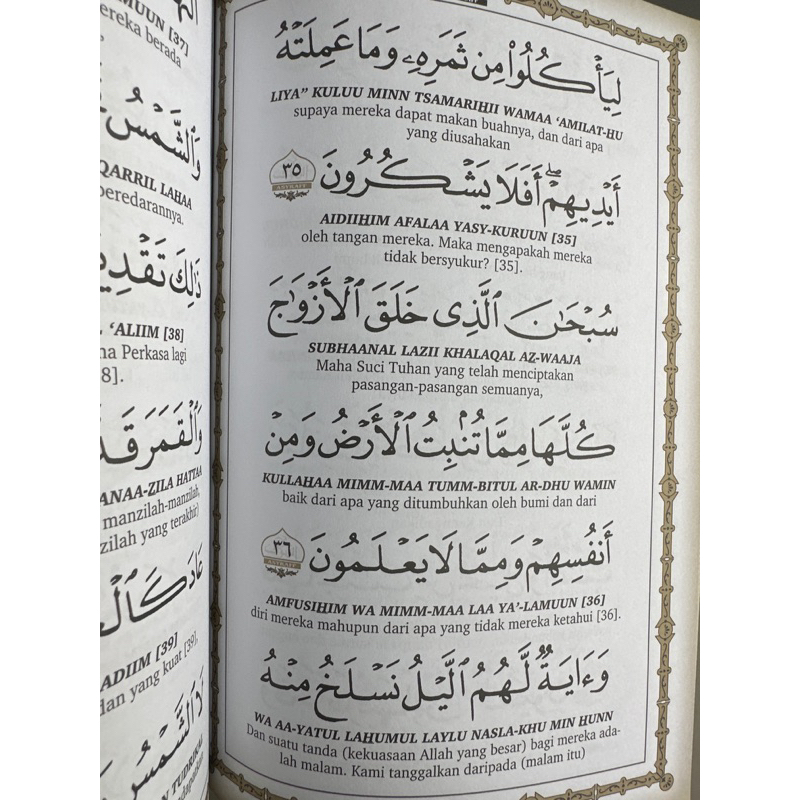 لِيَأْكُلُوا۟ مِن ثَمَرِهِۦ وَمَا عَمِلَتْهُ
LIYA” KULUU MINN TSAMARIHII WAMAA ‘AMILAT-HU
supaya mereka dapat makan buahnya, dan dari apa
yang diusahakan
أَيْدِيهِمْ ۖ أَفَلَا يَشْكُرُونَ ٣٥
AIDIIHIM AFALAA YASY-KURUUN [35]
oleh tangan mereka. Maka mengapakah mereka
tidak bersyukur? [35].
سُبْحَـٰنَ ٱلَّذِى خَلَقَ ٱلْأَزْوَٰجَ
SUBHAANAL LAZII KHALAQAL AZ-WAAJA
Maha Suci Tuhan yang telah menciptakan
pasangan-pasangan semuanya,
كُلَّهَا مِمَّا تُنۢبِتُ ٱلْأَرْضُ وَمِنْ
KULLAHAA MIMM-MAA TUMM-BITUL AR-DHU WAMIN
baik dari apa yang ditumbuhkan oleh bumi dan dari
أَنفُسِهِمْ وَمِمَّا لَا يَعْلَمُونَ ٣٦
AMFUSIHIM WA MIMM-MAA LAA YA’-LAMUUN [36]
diri mereka mahupun dari apa yang tidak mereka ketahui [36].
وَءَايَةٌ لَّهُمُ ٱلَّيْلُ نَسْلَخُ مِنْهُ
WA AA-YATUL LAHUMUL LAYLU NASLA-KHU MIN HUNN
Dan suatu tanda (kekuasaan Allah yang besar) bagi mereka ada-
lah malam. Kami tanggalkan daripada (malam itu)
[37]
mereka berada
وَٱلشَّمْسُ
LAHAA
peredarannya.
ذَٰلِكَ تَقْدِي
‘ALIIM [38]
Perkasa lagi
8].
وَٱلْقَمَرَ قَد
ANAA-ZILA HATTAA
manzilah-manzilah,
zilah yang terakhir)
عَادَ كَٱلْع
ADIIM [39]
dan yang kuat [39],